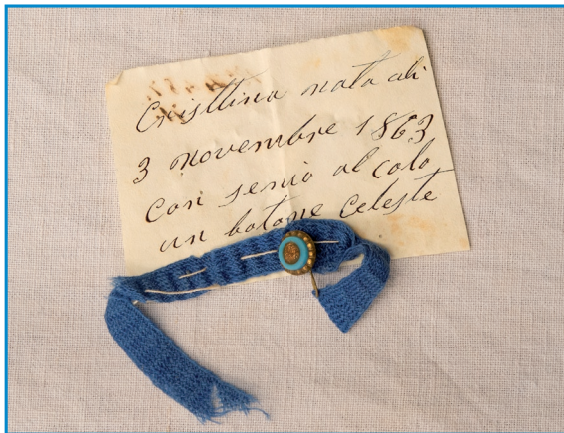 Cristtina nata ali
3 novembre 1863
Con senio al colo
un botone Celeste